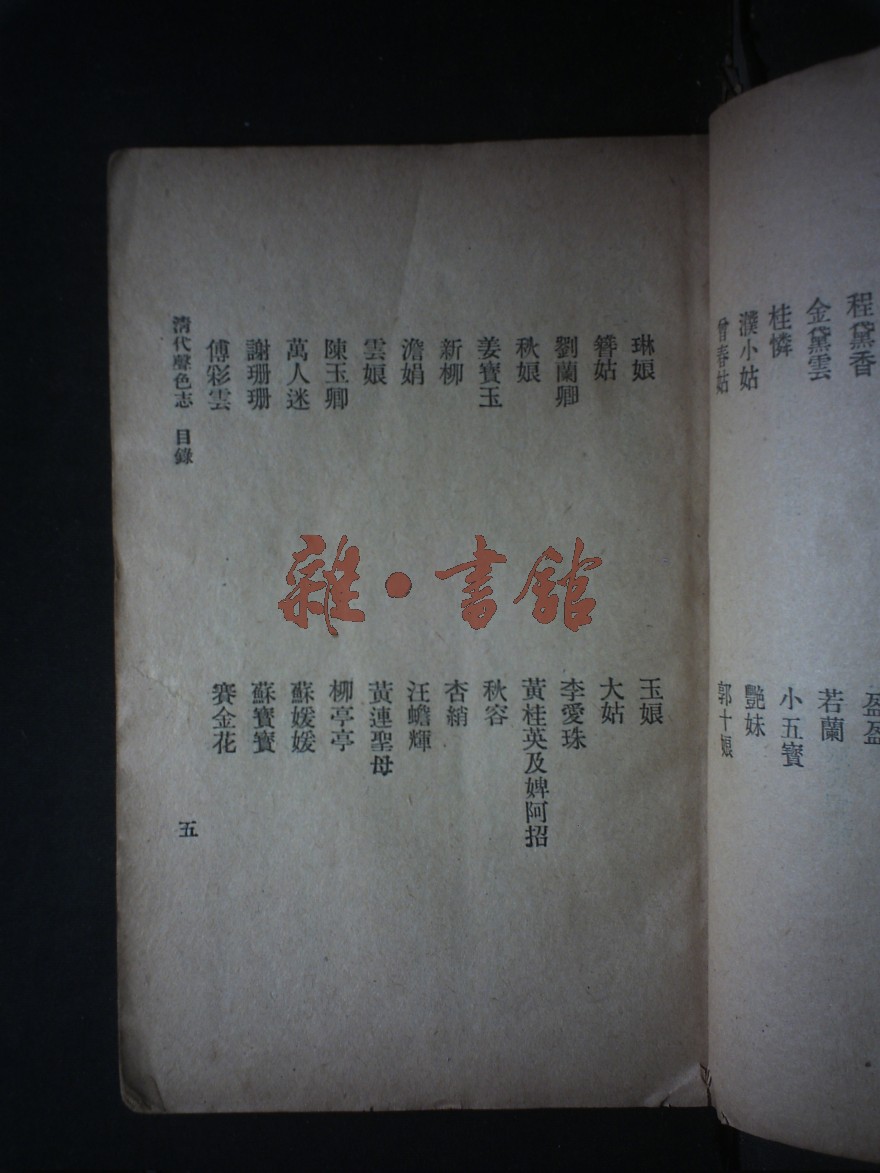 程黛香
金黛雲
桂憐
濮小姑
曾春姑
盈盈
若蘭
小五寶
艷妹
郭十娘
琳娘
簪姑
劉蘭卿
秋娘
姜寶玉
新柳
澹娟
雲娘
陳玉卿
萬人迷
謝珊珊
傅彩雲
玉娘
大姑
李愛珠
黃桂英及婢阿招
秋容
杏綃
汪蟾輝
黃連聖母
柳亭亭
蘇媛媛
蘇寶寶
賽金花
清代聲色志 目錄
五
雜·書館